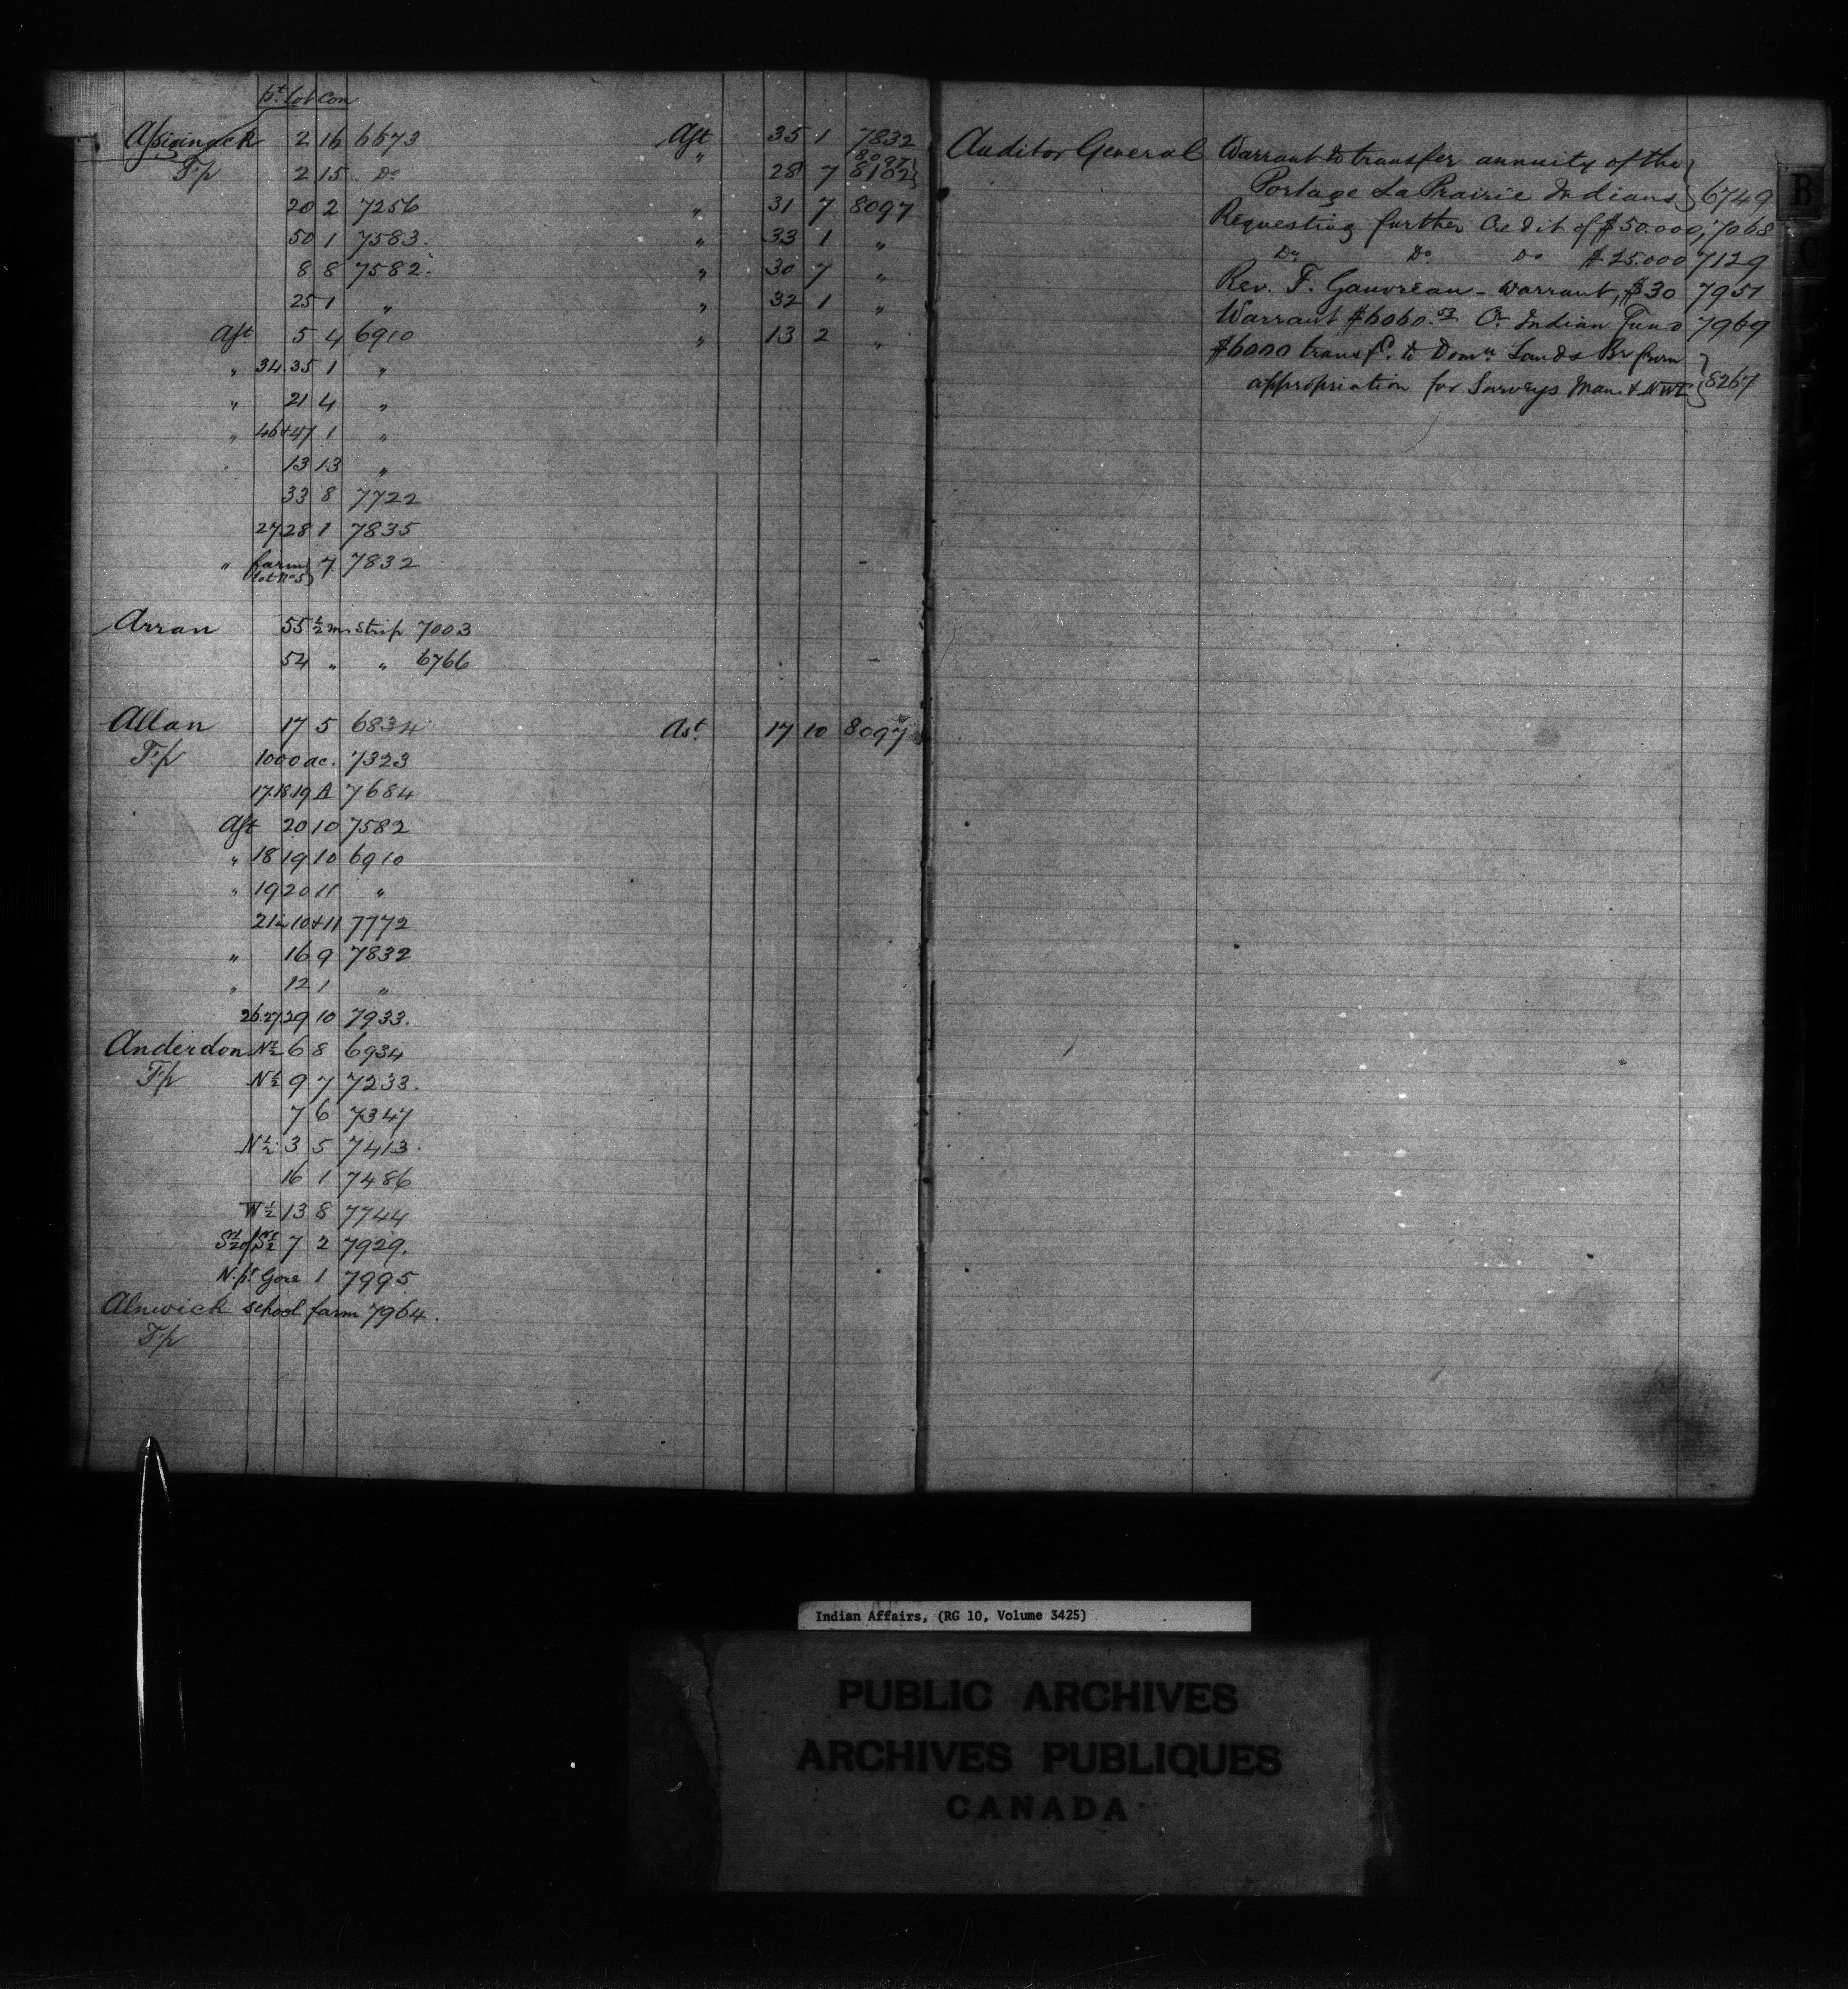 pt. lot con
Assiginack 2 16 6673
Tp 2 15 Do
20 2 7256
50 1 7583.
8 8 7582.
25 1 "
Asst 5 4 6910
" 34.35 1 "
" 21 4 "
" 46+47 1 "
13 13 "
33 8 7722
27.28 1 7835
" farm 7 7832
lot No 5
Arran 55 ½ m. Strip 7003
54 " " 6766
Allan 17 5 6834
Tp 1000 ac. 7323
17.18.19 A 7684
Asst 20 10 7582
" 18 19 10 6910
" 19 20 11 "
21 in 10+11 7772
" 16 9 7832
" 12 1 "
26.27.29 10 7933.
Anderdon N½ 6 8 6934
Tp N½ 9 7 7233.
7 6 7347
N½ 3 5 7413.
16 1 7486
W½ 13 8 7744
S½ of S½ 7 2 7929.
N. pt Gore 1 7995
Alnwick school farm 7964.
Tp
Asst 35 1 7832
8097
" 28 7 8102
" 31 7 8097
" 33 1 "
" 30 7 "
" 32 1 "
" 13 2 "
Ast. 17 10 8097
Auditor General Warrant to transfer annuity of the
Portage La Prairie Indians 6749
Requesting further Credit of $50.000, 7068
Do Do Do $25.000 7129
Rev. F. Gauvreau - warrant, $30 7951
Warrant $6060. Cr. Indian Fund 7969
$6000 transfd. to Domn Lands Br from
appropriation for Surveys Man. & NWT 8267
B
C
Indian Affairs, (RG 10, Volume 3425)
PUBLIC ARCHIVES
ARCHIVES PUBLIQUES
CANADA